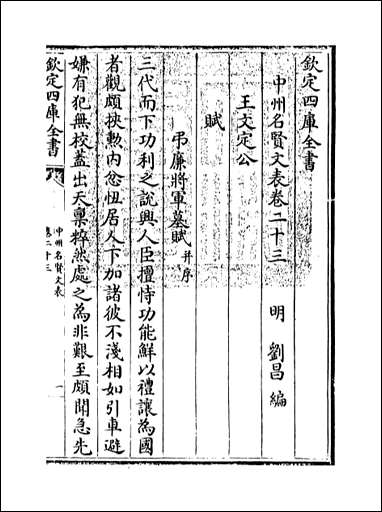 欽定四庫全書
中州名賢文表卷二十三
明 劉昌 編
王文定公
賦
弔廉將軍墓賦并序
三代而下功利之說興人臣擅恃功能鮮以禮讓為國
者觀頗挾勲内忿忸居人下加諸彼不淺相如引車避
嫌有犯無校蓋出天禀粹然處之為非艱至頗聞急先
欽定四庫全書
中州名賢文表
卷二十三
一